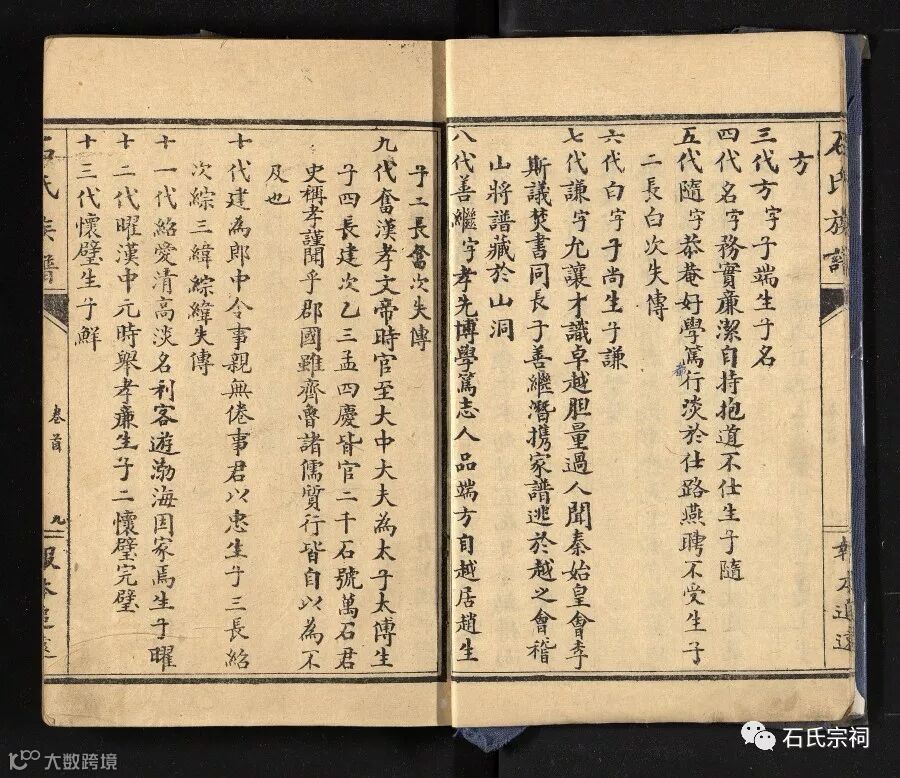 石氏族譜
報本追遠
方
三代方字子端生子名
四代名字務實廉潔自持抱道不仕生子隨
五代隨字恭菴好學篤行淡於仕路燕聘不受生子
二長白次失傳
六代白字子尚生子謙
七代謙字允讓才識卓越胆量過人聞秦始皇會李
斯議焚書同長子善繼潛携家譜逃於越之會稽
山將譜藏於山洞
八代善繼字孝先博學篤志人品端方自越居趙生
子二長奮次失傳
九代奮漢孝文帝時官至大中大夫為太子太傅生
子四長建次乙三孟四慶皆官二千石號萬石君
史稱孝謹聞乎郡國雖齊魯諸儒質行皆自以為不
及也
十代建為郎中令事親無倦事君以忠生子三長紹
次綜三緯綜緯失傳
十一代紹愛清高淡名利客遊渤海因家焉生子曜
十二代曜漢中元時舉孝廉生子二懷璧完璧
十三代懷璧生子鮮
石氏族譜
卷首
九
報本追遠
石氏宗祠
大数跨境